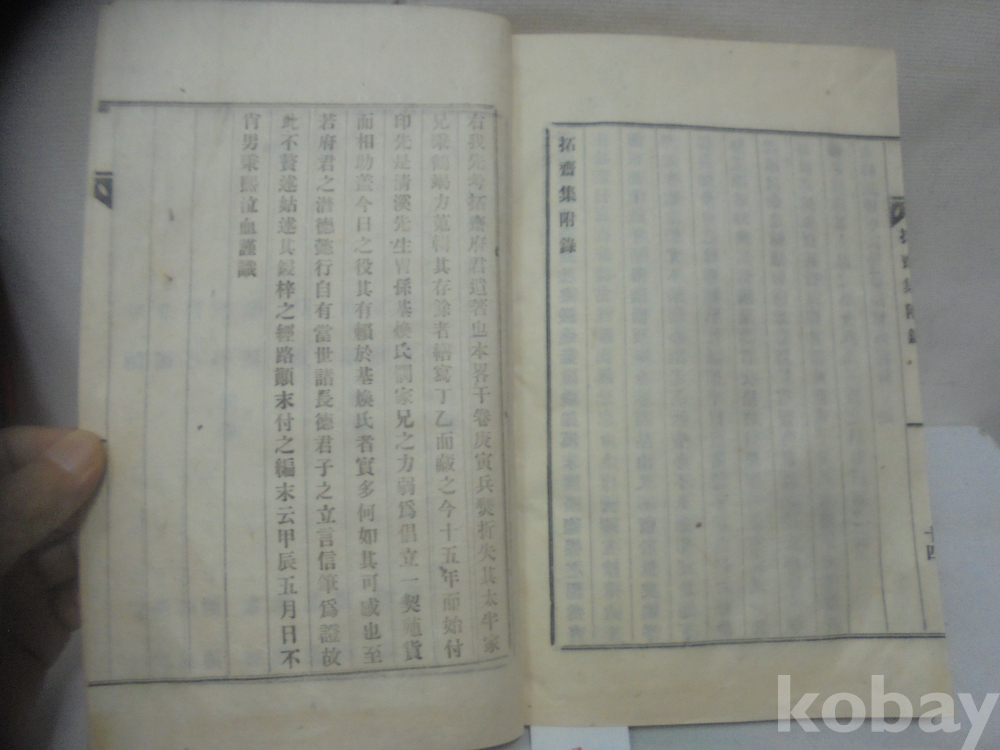 拓齋集附錄
十四
右我先考拓齋府君遺著也本畧干卷庚寅兵燹折失其太半家
兄秉 方蒐輯其存餘者繕寫丁乙而藏之今十五年而始付
印先是清溪先生胄孫基煥氏閔家兄之力弱爲倡立一契殖貨
而相助盖今日之役其有賴於基煥氏者實多何如其可感也至
若府君之潛德懿行自有當世諸長德君子之立言信筆爲證故
此不贅述姑述其鋟梓之經路顚末付之編末云甲辰五月日不
肖男秉熙泣血謹識
kobay